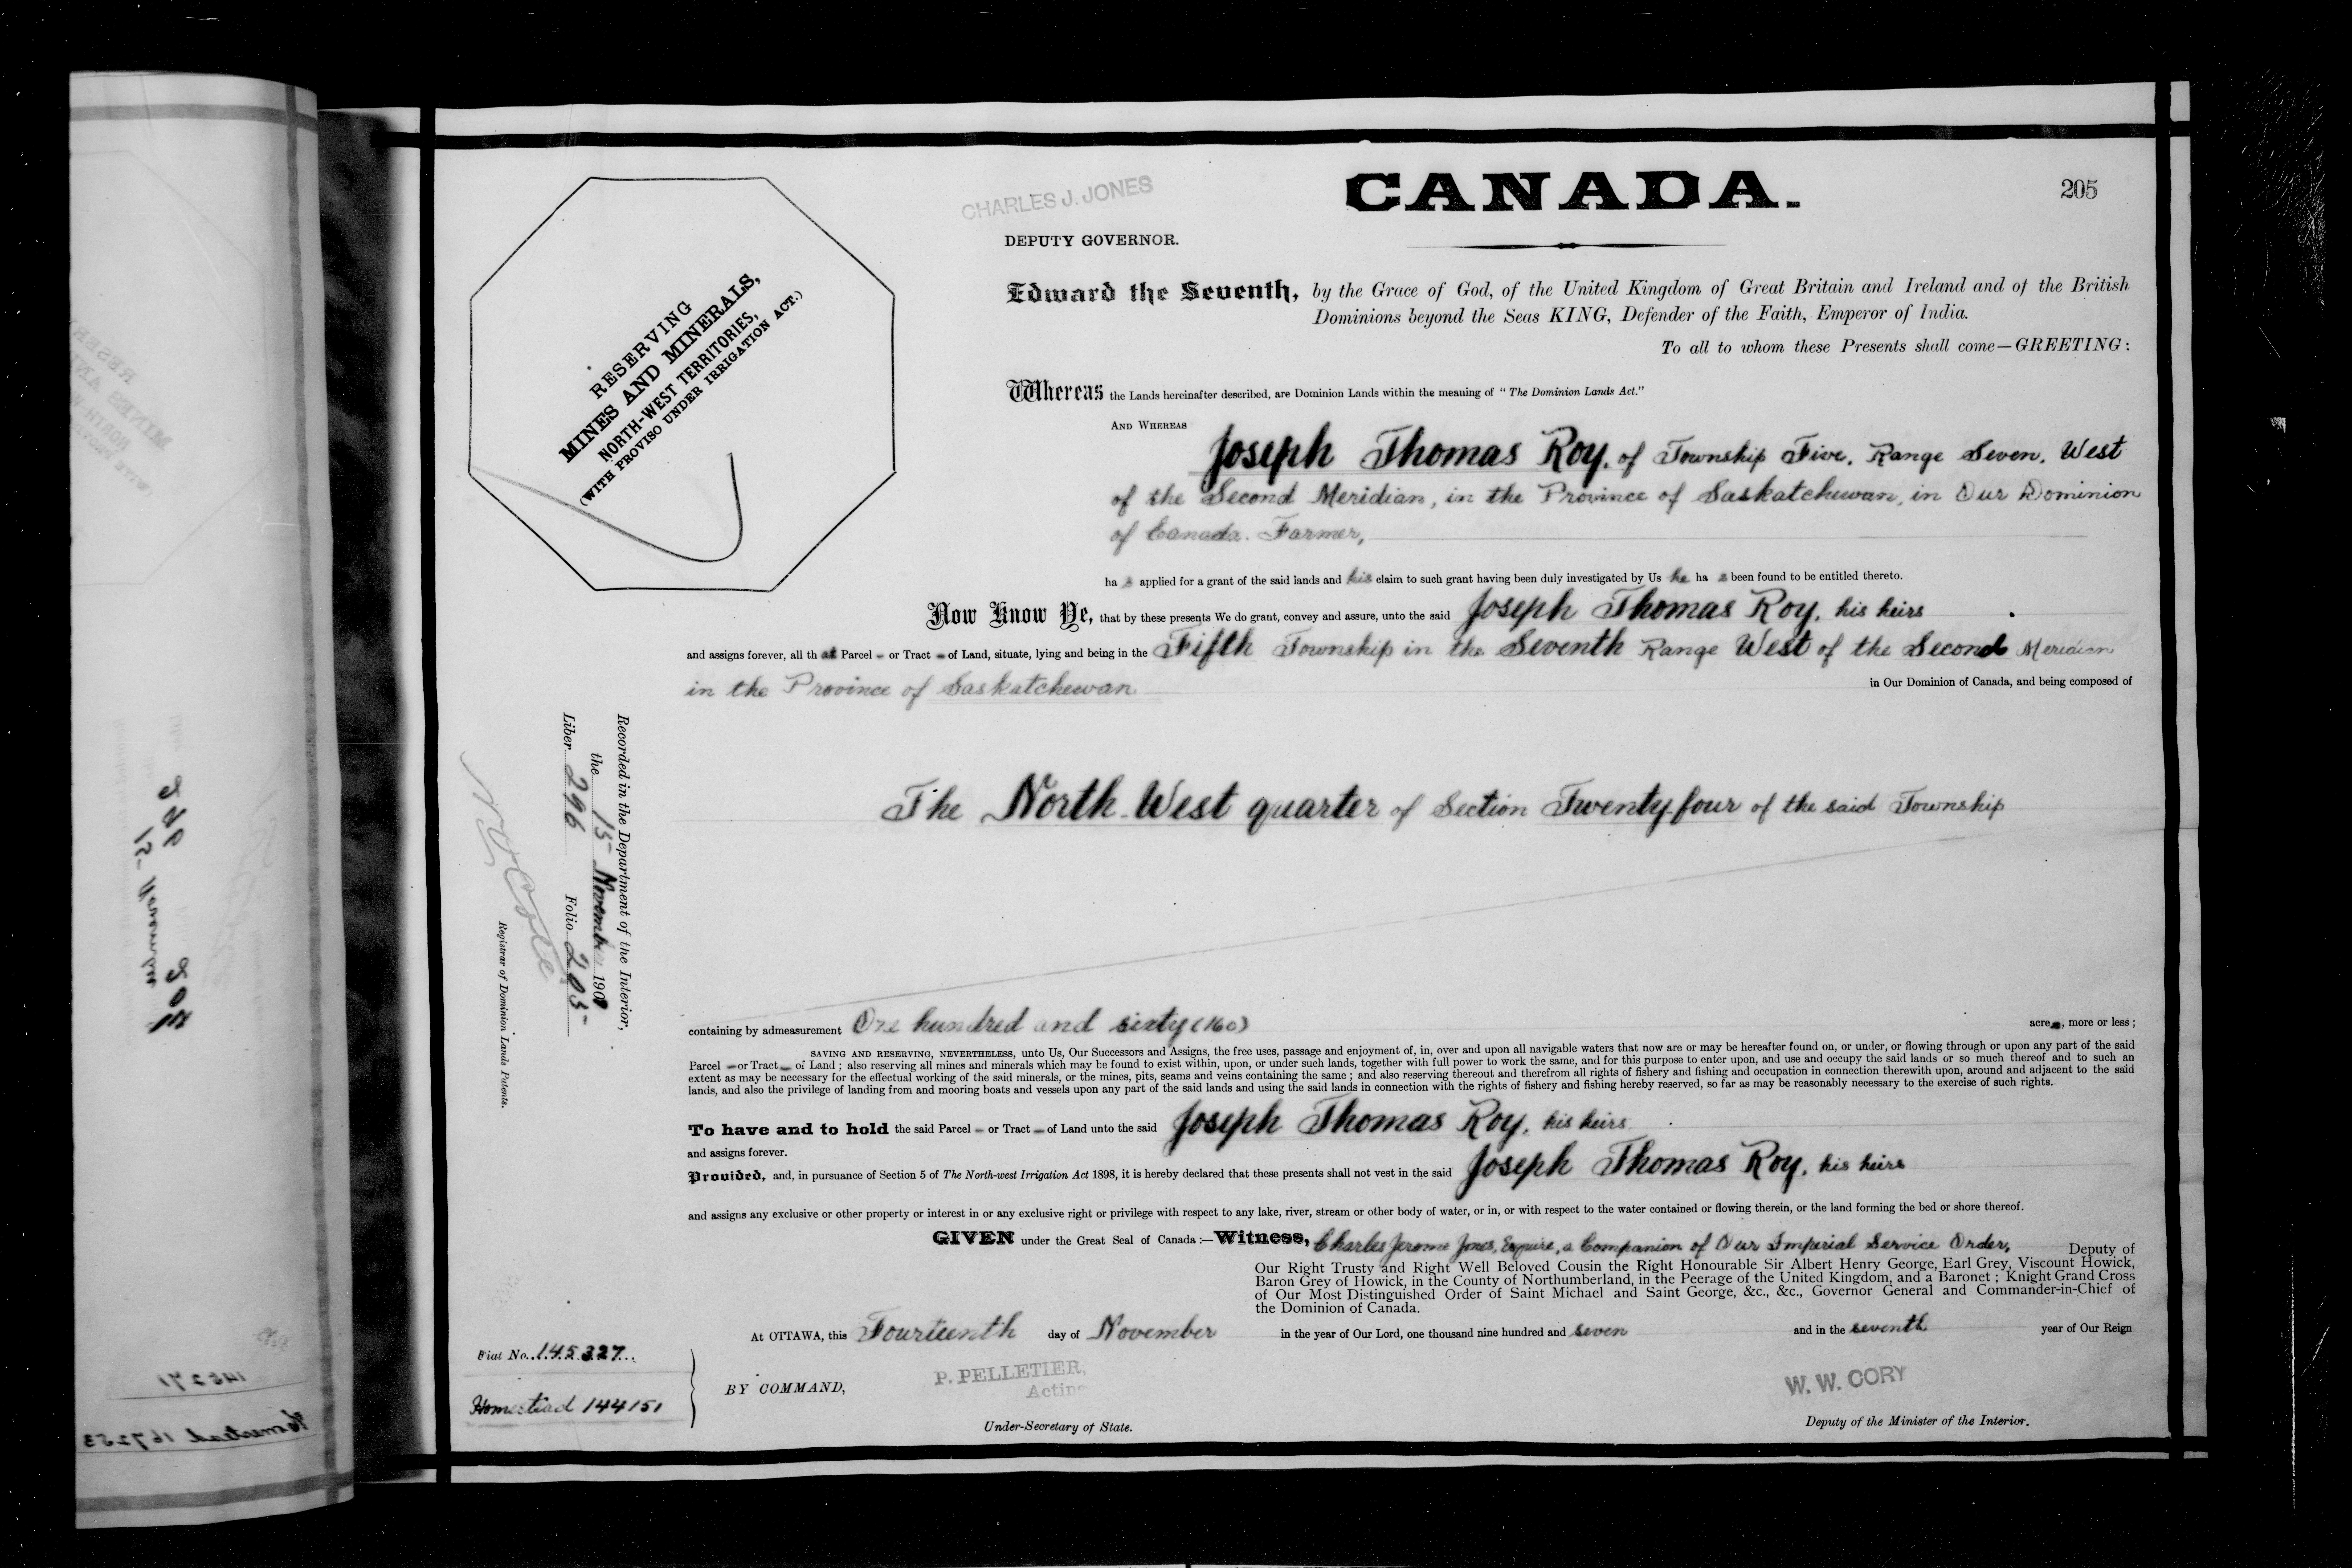 CANADA.
205
CHARLES J. JONES
DEPUTY GOVERNOR.
RESERVING
MINES AND MINERALS,
NORTH-WEST TERRITORIES,
(WITH PROVISO UNDER IRRIGATION ACT.)
Edward the Seventh, by the Grace of God, of the United Kingdom of Great Britain and Ireland and of the British
Dominions beyond the Seas KING, Defender of the Faith, Emperor of India.
To all to whom these Presents shall come—GREETING:
Whereas the Lands hereinafter described, are Dominion Lands within the meaning of "The Dominion Lands Act."
AND WHEREAS
Joseph Thomas Roy, of Township Five, Range Seven, West
of the Second Meridian, in the Province of Saskatchewan, in Our Dominion
of Canada. Farmer,
ha s applied for a grant of the said lands and his claim to such grant having been duly investigated by Us he ha s been found to be entitled thereto.
Now Know Ye, that by these presents We do grant, convey and assure, unto the said Joseph Thomas Roy, his heirs
and assigns forever, all th at Parcel – or Tract – of Land, situate, lying and being in the Fifth Township in the Seventh Range West of the Second Meridian
in the Province of Saskatchewan in Our Dominion of Canada, and being composed of
The North-West quarter of Section Twenty-four of the said Township
Recorded in the Department of the Interior,
the 15 November 1907
Liber 296 Folio 205
Registrar of Dominion Lands Patents.
containing by admeasurement One hundred and sixty (160) acres, more or less;
SAVING AND RESERVING, NEVERTHELESS, unto Us, Our Successors and Assigns, the free uses, passage and enjoyment of, in, over and upon all navigable waters that now are or may be hereafter found on, or under, or flowing through or upon any part of the said
Parcel – or Tract – of Land; also reserving all mines and minerals which may be found to exist within, upon, or under such lands, together with full power to work the same, and for this purpose to enter upon, and use and occupy the said lands or so much thereof and to such an
extent as may be necessary for the effectual working of the said minerals, or the mines, pits, seams and veins containing the same; and also reserving thereout and therefrom all rights of fishery and fishing and occupation in connection therewith upon, around and adjacent to the said
lands, and also the privilege of landing from and mooring boats and vessels upon any part of the said lands and using the said lands in connection with the rights of fishery and fishing hereby reserved, so far as may be reasonably necessary to the exercise of such rights.
To have and to hold the said Parcel – or Tract – of Land unto the said Joseph Thomas Roy, his heirs
and assigns forever.
Provided, and, in pursuance of Section 5 of The North-west Irrigation Act 1898, it is hereby declared that these presents shall not vest in the said Joseph Thomas Roy, his heirs
and assigns any exclusive or other property or interest in or any exclusive right or privilege with respect to any lake, river, stream or other body of water, or in, or with respect to the water contained or flowing therein, or the land forming the bed or shore thereof.
GIVEN under the Great Seal of Canada:—Witness, Charles Jerome Jones, Esquire, a Companion of Our Imperial Service Order, Deputy of
Our Right Trusty and Right Well Beloved Cousin the Right Honourable Sir Albert Henry George, Earl Grey, Viscount Howick,
Baron Grey of Howick, in the County of Northumberland, in the Peerage of the United Kingdom, and a Baronet; Knight Grand Cross
of Our Most Distinguished Order of Saint Michael and Saint George, &c., &c., Governor General and Commander-in-Chief of
the Dominion of Canada.
At OTTAWA, this Fourteenth day of November in the year of Our Lord, one thousand nine hundred and seven and in the seventh year of Our Reign
Fiat No. 145327
Homestead 144151
BY COMMAND,
P. PELLETIER,
Acting
Under-Secretary of State.
W. W. CORY
Deputy of the Minister of the Interior.